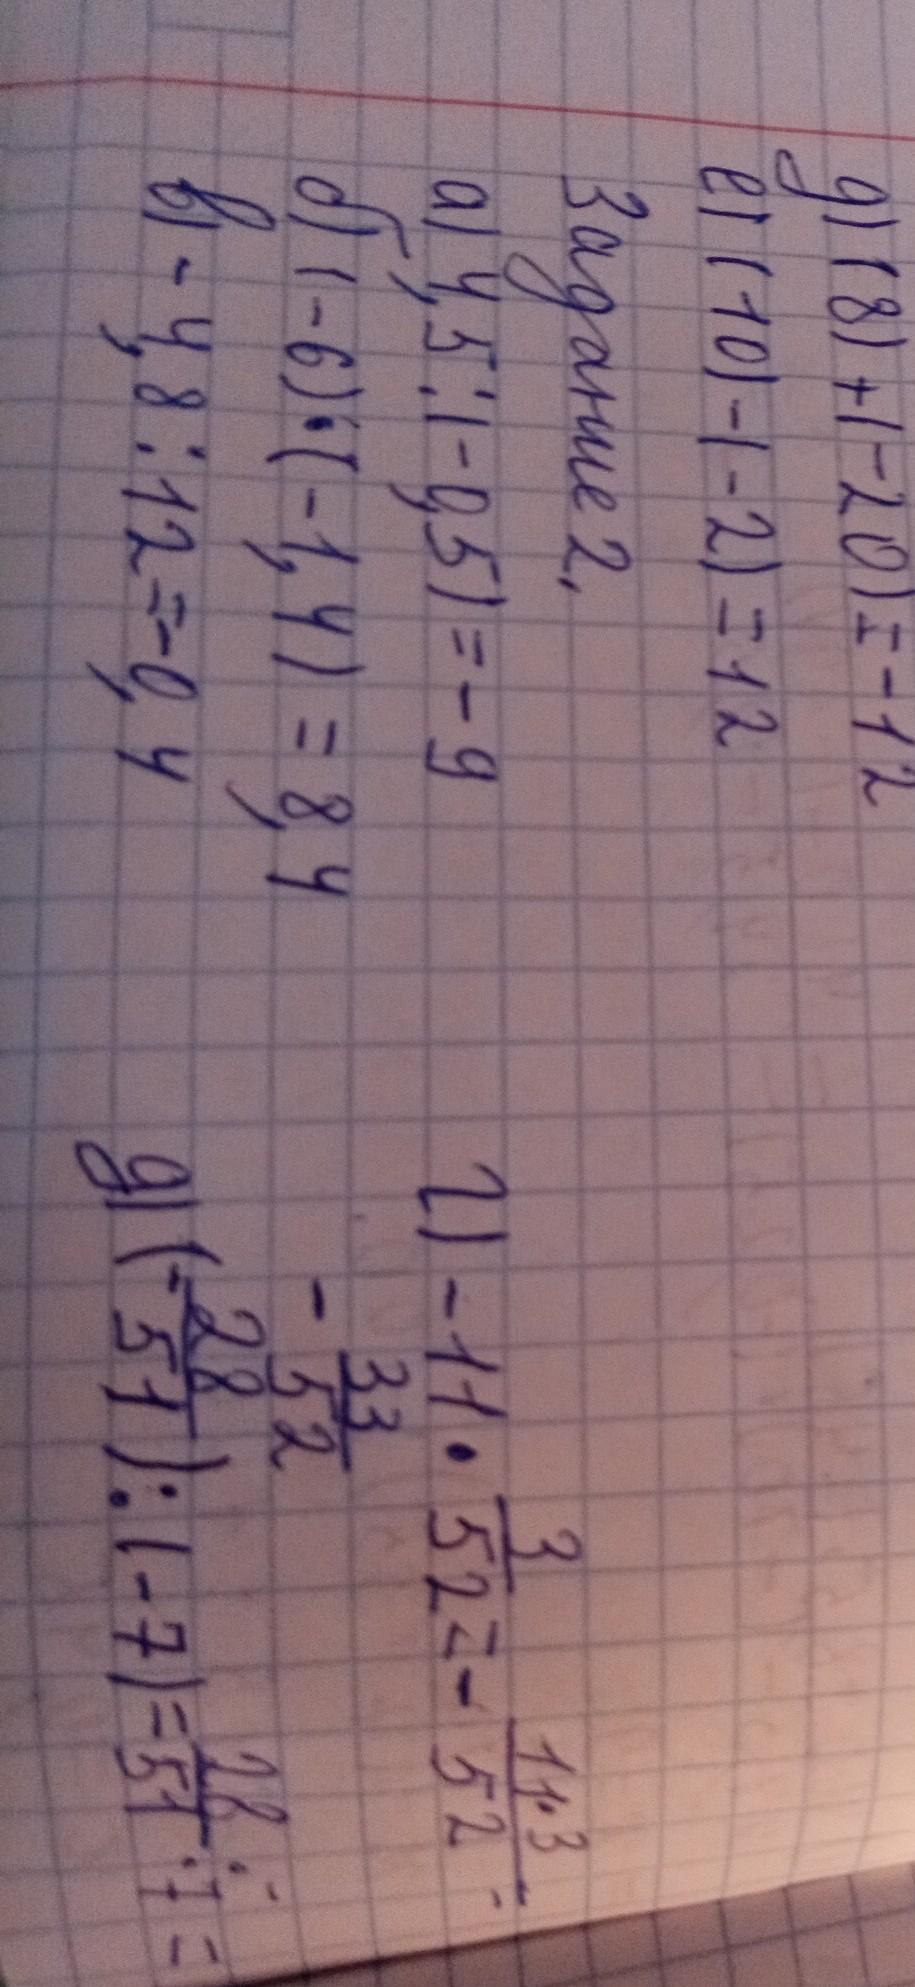 д) (8)+(-20)=-12
е) (10)-(-2)=12
Задание 2.
а) 4,5:(-0,5)=-9
б) (-6)·(-1,4)=8,4
в) -4,8:12=-0,4
г) -11·3/52=-11·3/52=
-33/52
д) (-28/51):(-7)=28/51:7=